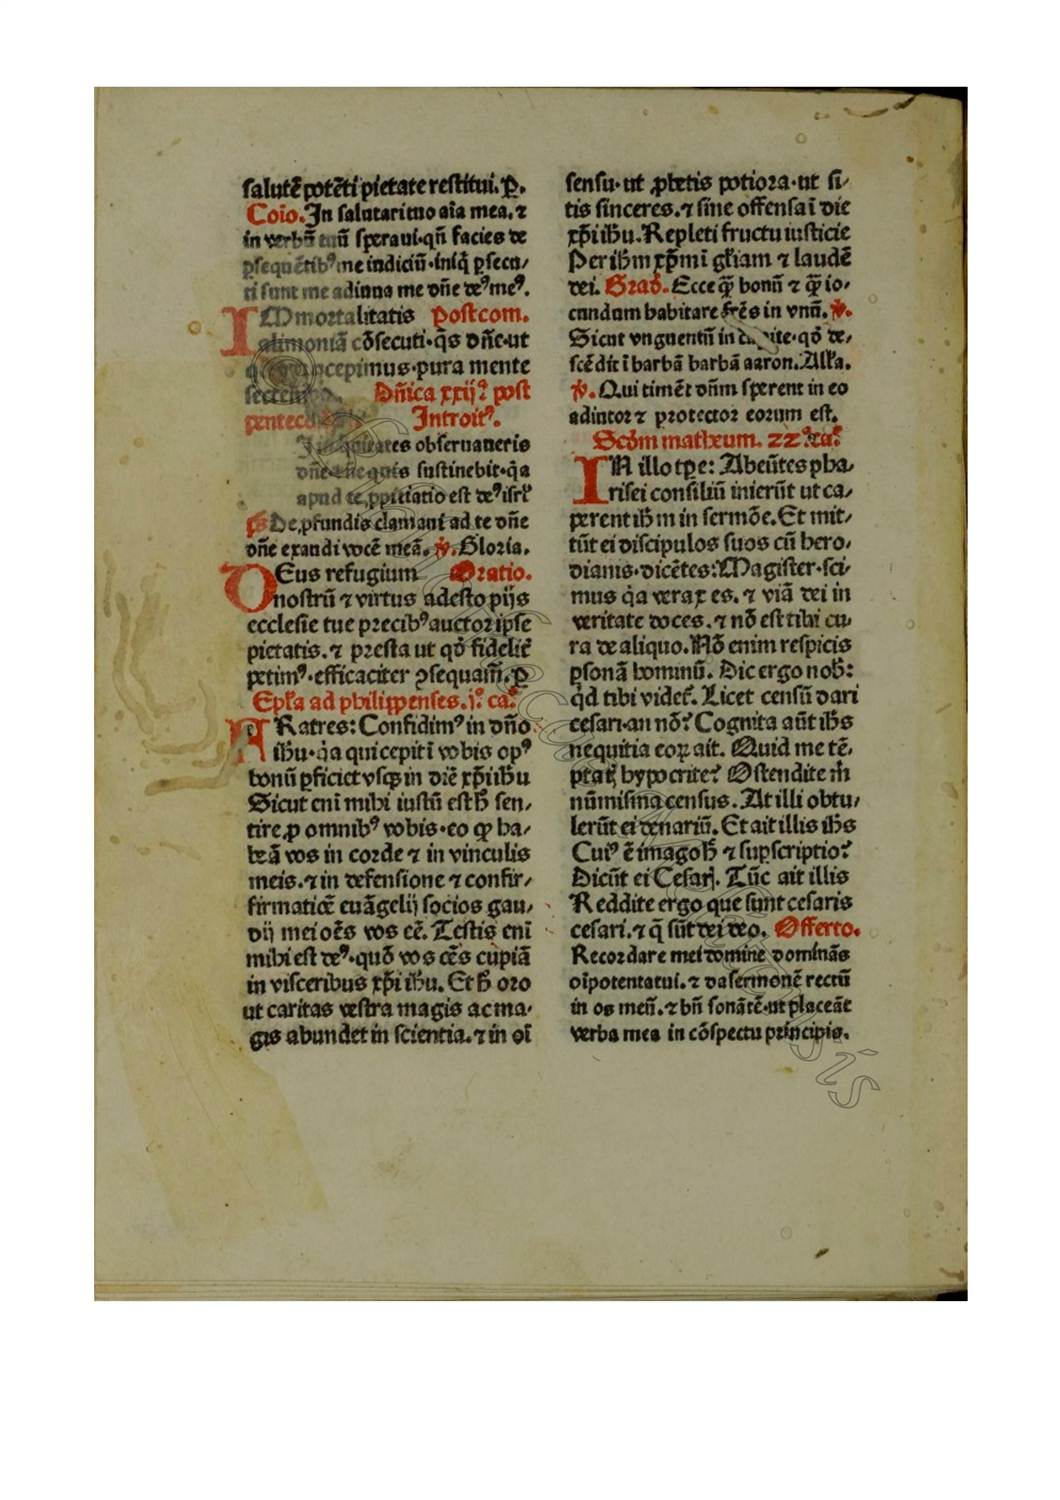 salutē potēti pietate restitui. P̱.
Coīo. In salutari tuo aīa mea. ⁊
in verbū tuū speraui·qn̄ facies de
p̱sequētibꝰ me indiciū·iniq̇ p̱secu/
ti sunt me adiuua me dn̄e deꝰ meꝰ.
IMmortalitatis Postcom.
alimoniā cōsecuti·q̄s dn̄e·ut
mus·pura mente
Dn̄ica xxijꝰ post
penteco Introitꝰ.
tes obseruaueris
dn̄e quis sustinebit·q̇a
apud te ꝓpitiatio est deꝰ isrl̄
p̄s De ꝓfundis clamaui ad te dn̄e
dn̄e exaudi vocē meā. ℣. Gloria.
DEus refugium Oratio.
nostrū ⁊ virtus adesto pijs
ecclesie tue precibꝰ auctor ipse
pietatis. ⁊ presta ut qd̄ fidelit̄
petimꝰ·efficaciter ꝯsequam̄. P̱
Epl̄a ad philippenses. jꝰ. caꝰ.
FRatres: Confidimꝰ in dn̄o
ih̄u·q̇a qui cepit ī vobis opꝰ
bonū p̱ficiet vsq̄ in diē xp̄i ih̄u
Sicut eni mihi iustū est h̄ sen/
tire ꝓ omnibꝰ vobis·eo ꝙ ha/
beā vos in corde ⁊ in vinculis
meis. ⁊ in defensione ⁊ confir/
firmatiōe euāgelij socios gau/
dij mei oēs vos eē. Testis enī
mihi est deꝰ·quō vos oēs cupiā
in visceribus xp̄i ih̄u. Et h̄ oro
ut caritas vestra magis ac ma·
gis abundet in scientia. ⁊ in oī
sensu·ut ꝓbetis potiora·ut si/
tis sinceres. ⁊ sine offensa ī die
xp̄i ih̄u. Repleti fructu iusticie
Per ih̄m xp̄m ī gl̄iam ⁊ laudē
dei. Grad̄. Ecce q̄ bonū ⁊ q̄ io/
cundum habitare fr̄es in vnū. ℣.
Sicut vnguentū in capite·qd̄ de/
scēdit ī barbā barbā aaron. All̄a.
℣. Qui timēt dn̄m sperent in eo
adiutor ⁊ protector eorum est.
Scd̄m matheum. 22ꝰ. caꝰ
IN illo tp̄e: Abeūtes pha/
risei consiliū inierūt ut ca/
perent ih̄m in sermōe. Et mit/
tūt ei discipulos suos cū hero/
dianis·dicētes: Magister·sci/
mus q̇a verax es. ⁊ viā dei in
veritate doces. ⁊ nō est tibi cu/
ra de aliquo. Nō enim respicis
p̱sonā hominū. Dic ergo nob̄:
q̇d tibi videt̄. Licet censū dari
cesari·an nō? Cognita aūt ih̄s
nequitia eoꝝ ait. Quid me tē/
ptatꝭ hypocrite? Ostendite m̄
nūmisma census. At illi obtu/
lerūt ei denariū. Et ait illis ih̄s
Cuiꝰ ē imago h̄ ⁊ sup̱scriptio?
Dicūt ei Cesarꝭ. Tūc ait illis
Reddite ergo que sunt cesaris
cesari. ⁊ q̄ sūt dei deo. Offerto.
Recordare mei domine dominās
oīpotentatui. ⁊ da sermonē rectū
in os meū. ⁊ bn̄ sonātē·ut placeāt
verba mea in cōspectu principis.